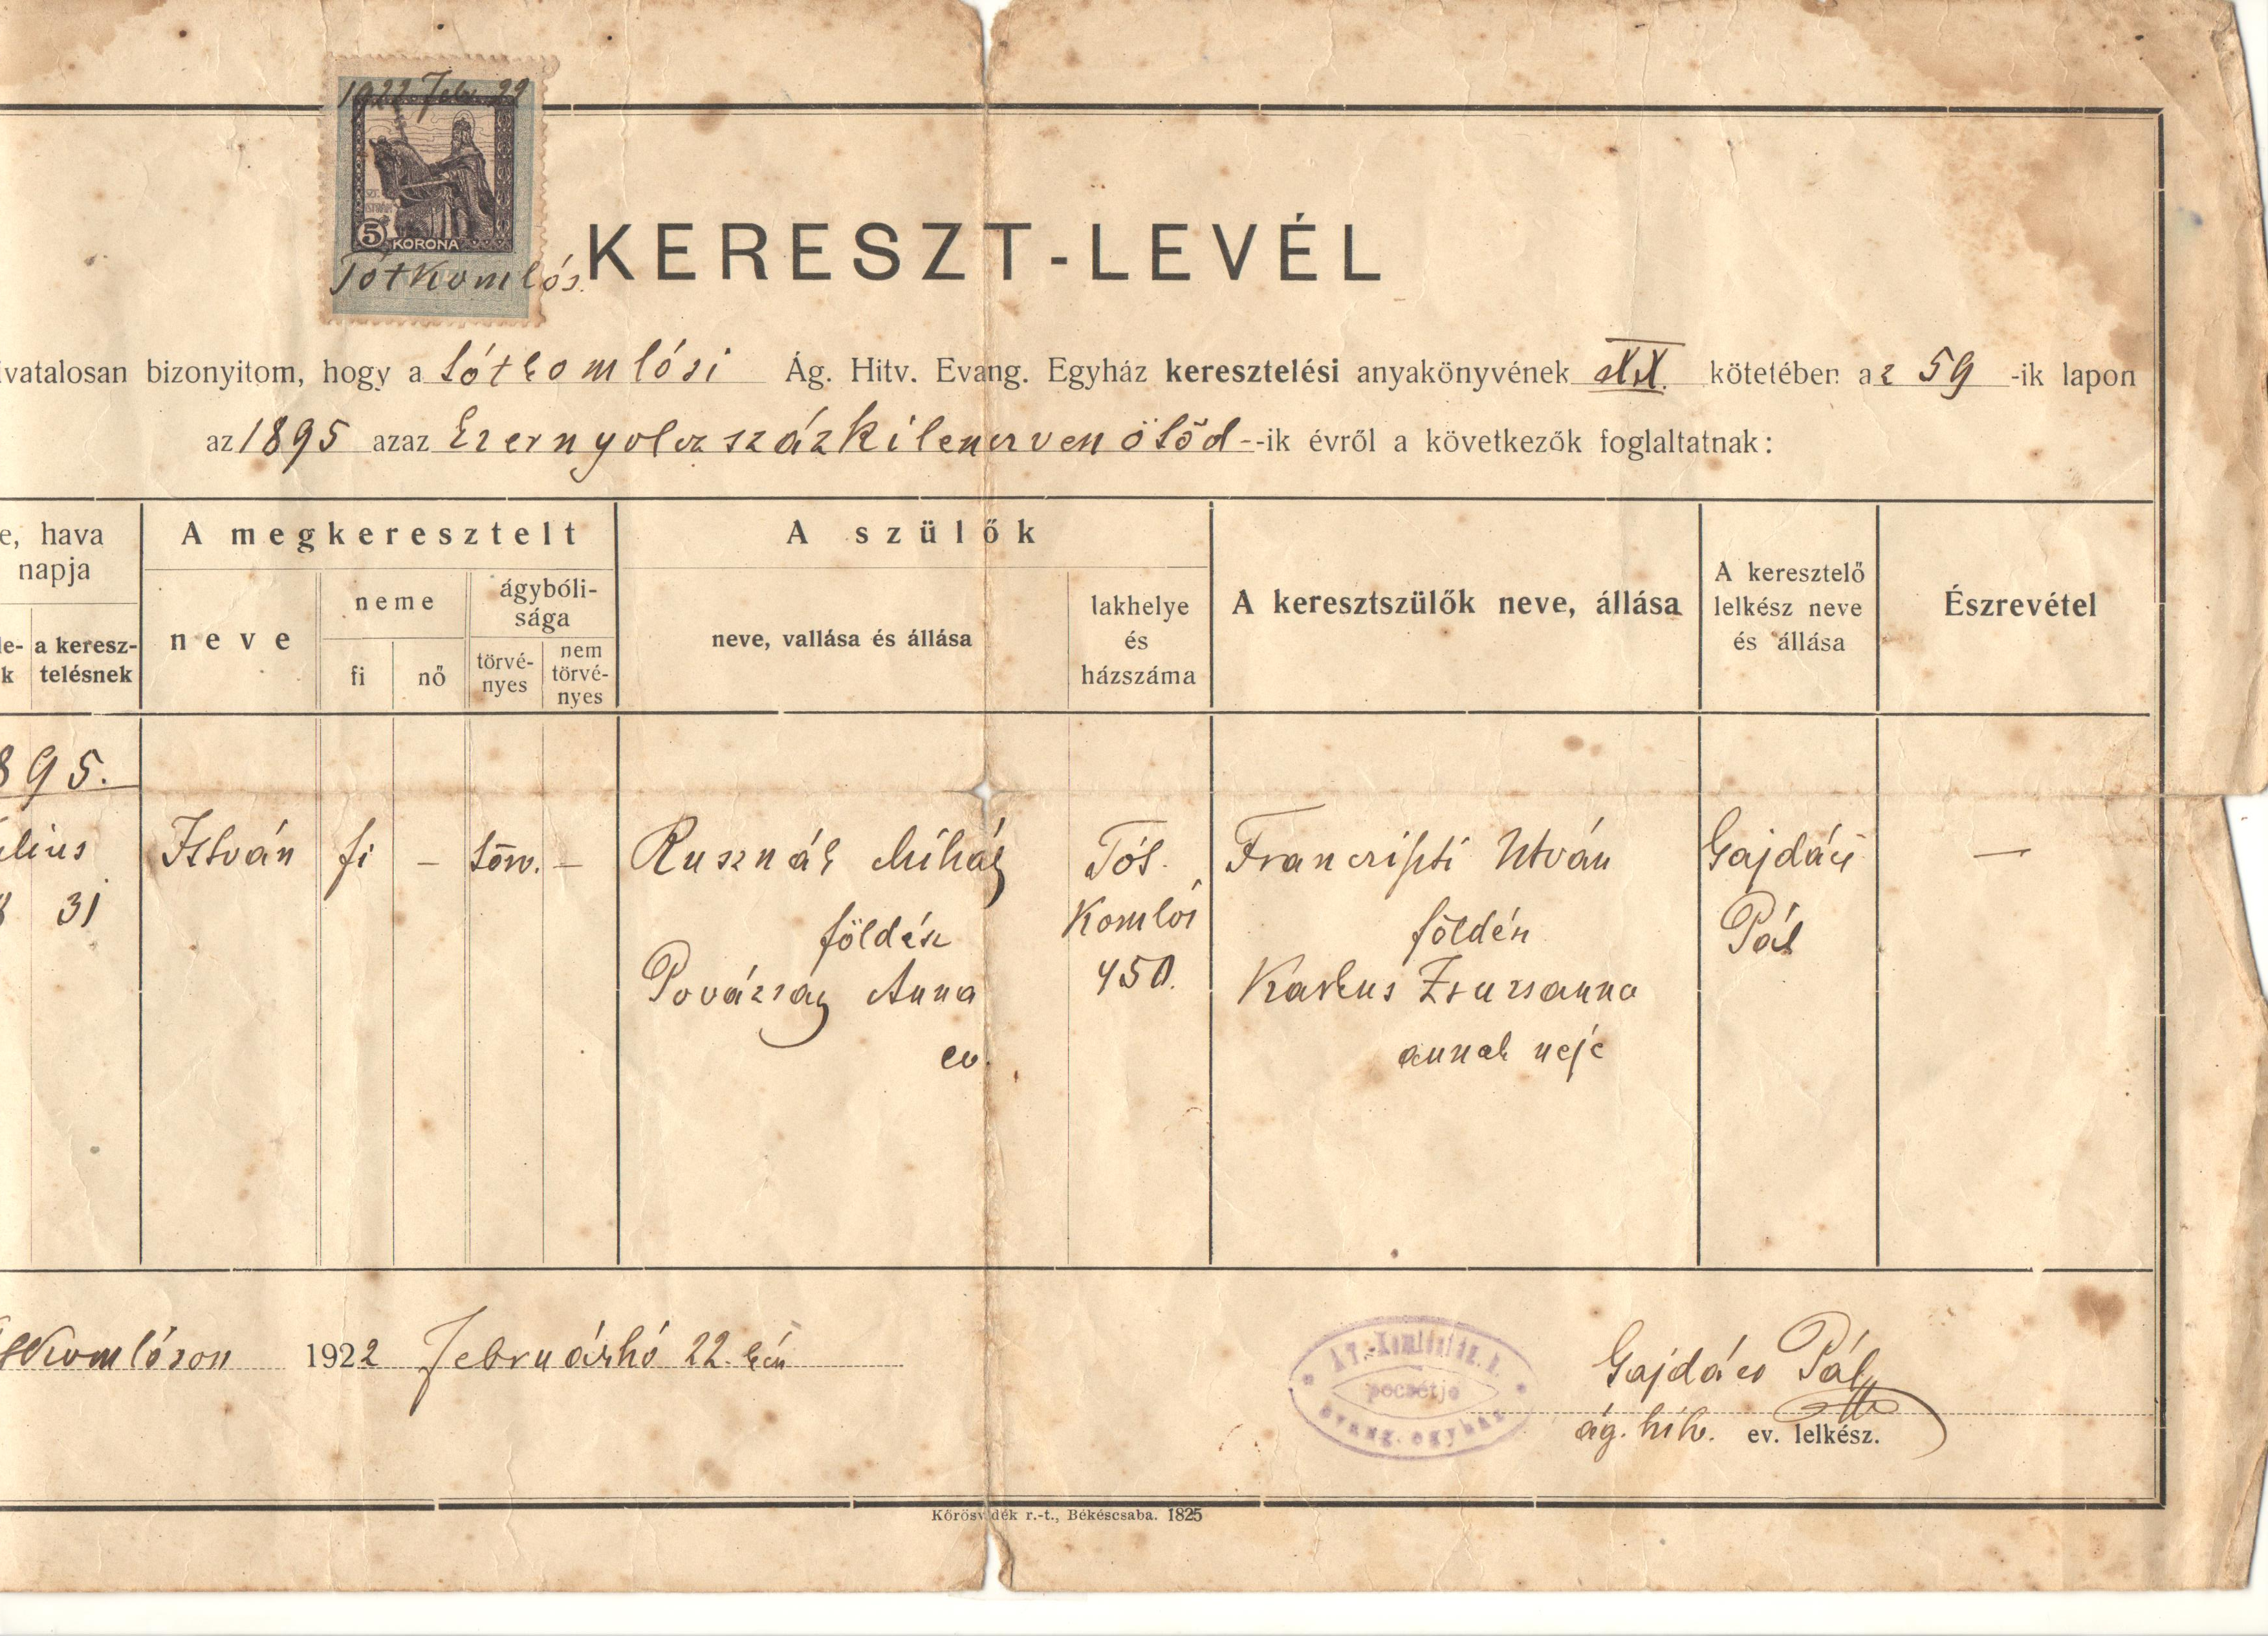 1922 Febr 22
SZT. ISTVÁN
5 KORONA
Tótkomlós.
KERESZT-LEVÉL
ivatalosan bizonyitom, hogy a tótkomlósi Ág. Hitv. Evang. Egyház keresztelési anyakönyvének XX. kötetében az 59 -ik lapon
az 1895 azaz Ezernyolczszázkilenczvenötöd -ik évről a következők foglaltatnak:
e, hava
napja
A megkeresztelt
A szülők
A keresztszülők neve, állása
A keresztelő
lelkész neve
és állása
Észrevétel
le-
k
a keresz-
telésnek
neve
neme
fi
nő
ágybóli-
sága
törvé-
nyes
nem
törvé-
nyes
neve, vallása és állása
lakhelye
és
házszáma
895.
úlius István fi – törv. – Rusznák Mihály Tót- Francziszti István Gajdács —
8 31 földész Komlós földész Pál
Povázsay Anna 450. Karkus Zsuzsanna
ev. annak neje
tkomlóson 1922 Februárhó 22-kén
A T.-Komlósi ág. h.
pecsétje
evang. egyház
Gajdács Pál
ág. hitv. ev. lelkész.
Körösvidék r.-t., Békéscsaba. 1825